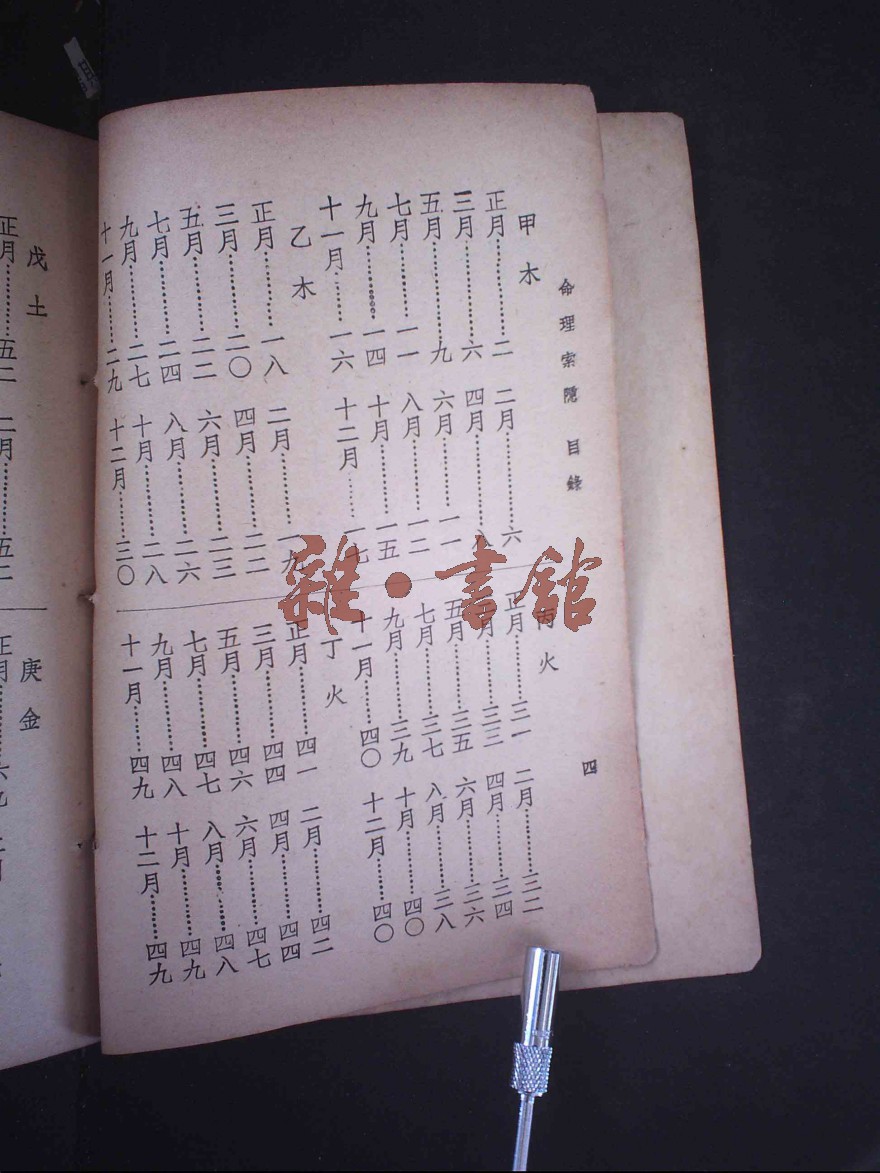 命理索隱 目錄 四
甲木
正月………二 二月………六
三月………六 四月………八
五月………九 六月………一一
七月………一一 八月………一二
九月………一四 十月………一五
十一月……一六 十二月……一七
乙木
正月………一八 二月………一九
三月………二〇 四月………二二
五月………二二 六月………二三
七月………二四 八月………二六
九月………二七 十月………二八
十一月……二九 十二月……三〇
丙火
正月………三一 二月………三二
月………三三 四月………三四
五月………三五 六月………三六
七月………三七 八月………三八
九月………三九 十月………四〇
十一月……四〇 十二月……四〇
丁火
正月………四一 二月………四二
三月………四四 四月………四四
五月………四六 六月………四七
七月………四七 八月………四八
九月………四八 十月………四九
十一月……四九 十二月……四九
戊土
正月………五二 二月………五二
庚金
正月
雜·書館